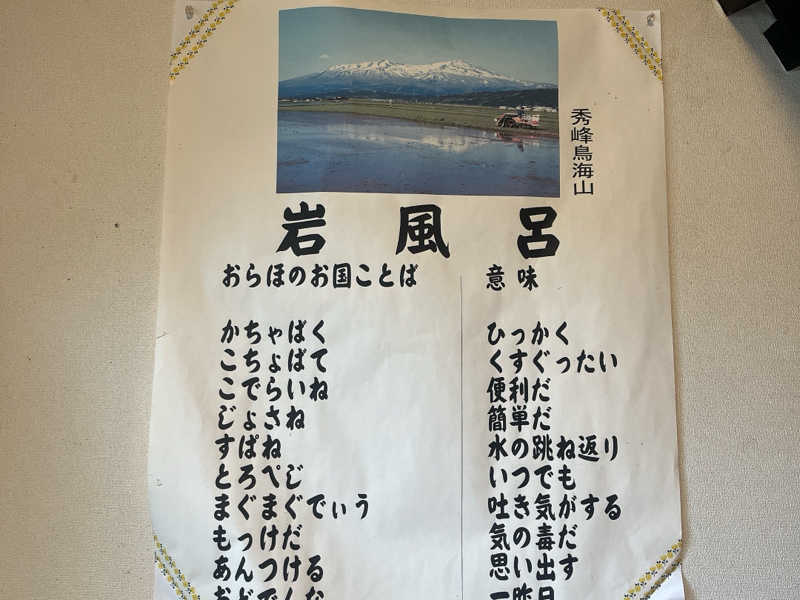 秀峰鳥海山
岩風呂
おらほのお国ことば 意味
かちゃばく ひっかく
こちょばて くすぐったい
こでらいね 便利だ
じょさね 簡単だ
すぱね 水の跳ね返り
とろぺじ いつでも
まぐまぐでぃう 吐き気がする
もっけだ 気の毒だ
あんつける 思い出す
おどでんな 一昨日